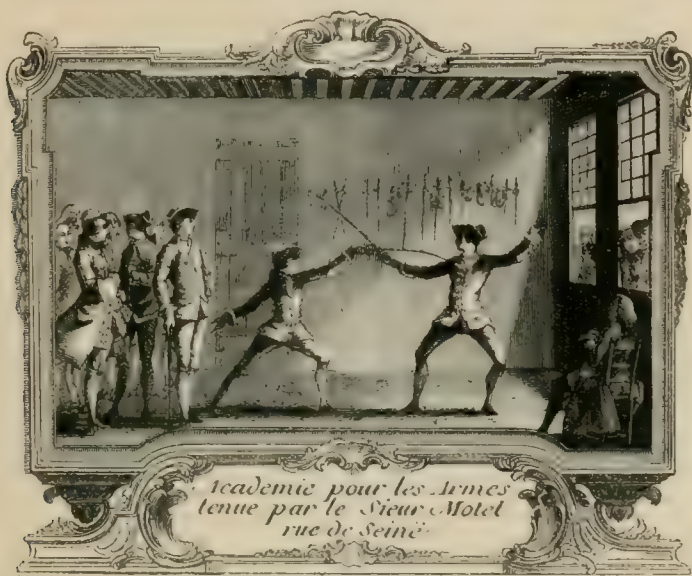 Academie pour les Armes
tenue par le Sieur Motet
rue de Seine